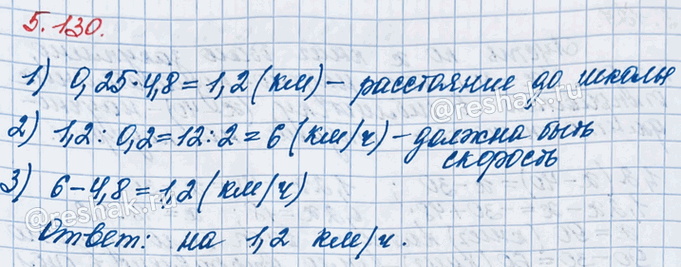 5.130.
1) 0,25·4,8=1,2 (км) – расстояние до школы
2) 1,2 : 0,2=12 : 2=6 (км/ч) – должна быть
скорость
3) 6–4,8=1,2 (км/ч)
Ответ: на 1,2 км/ч.
@reshak.ru
@reshak.ru
@reshak.ru